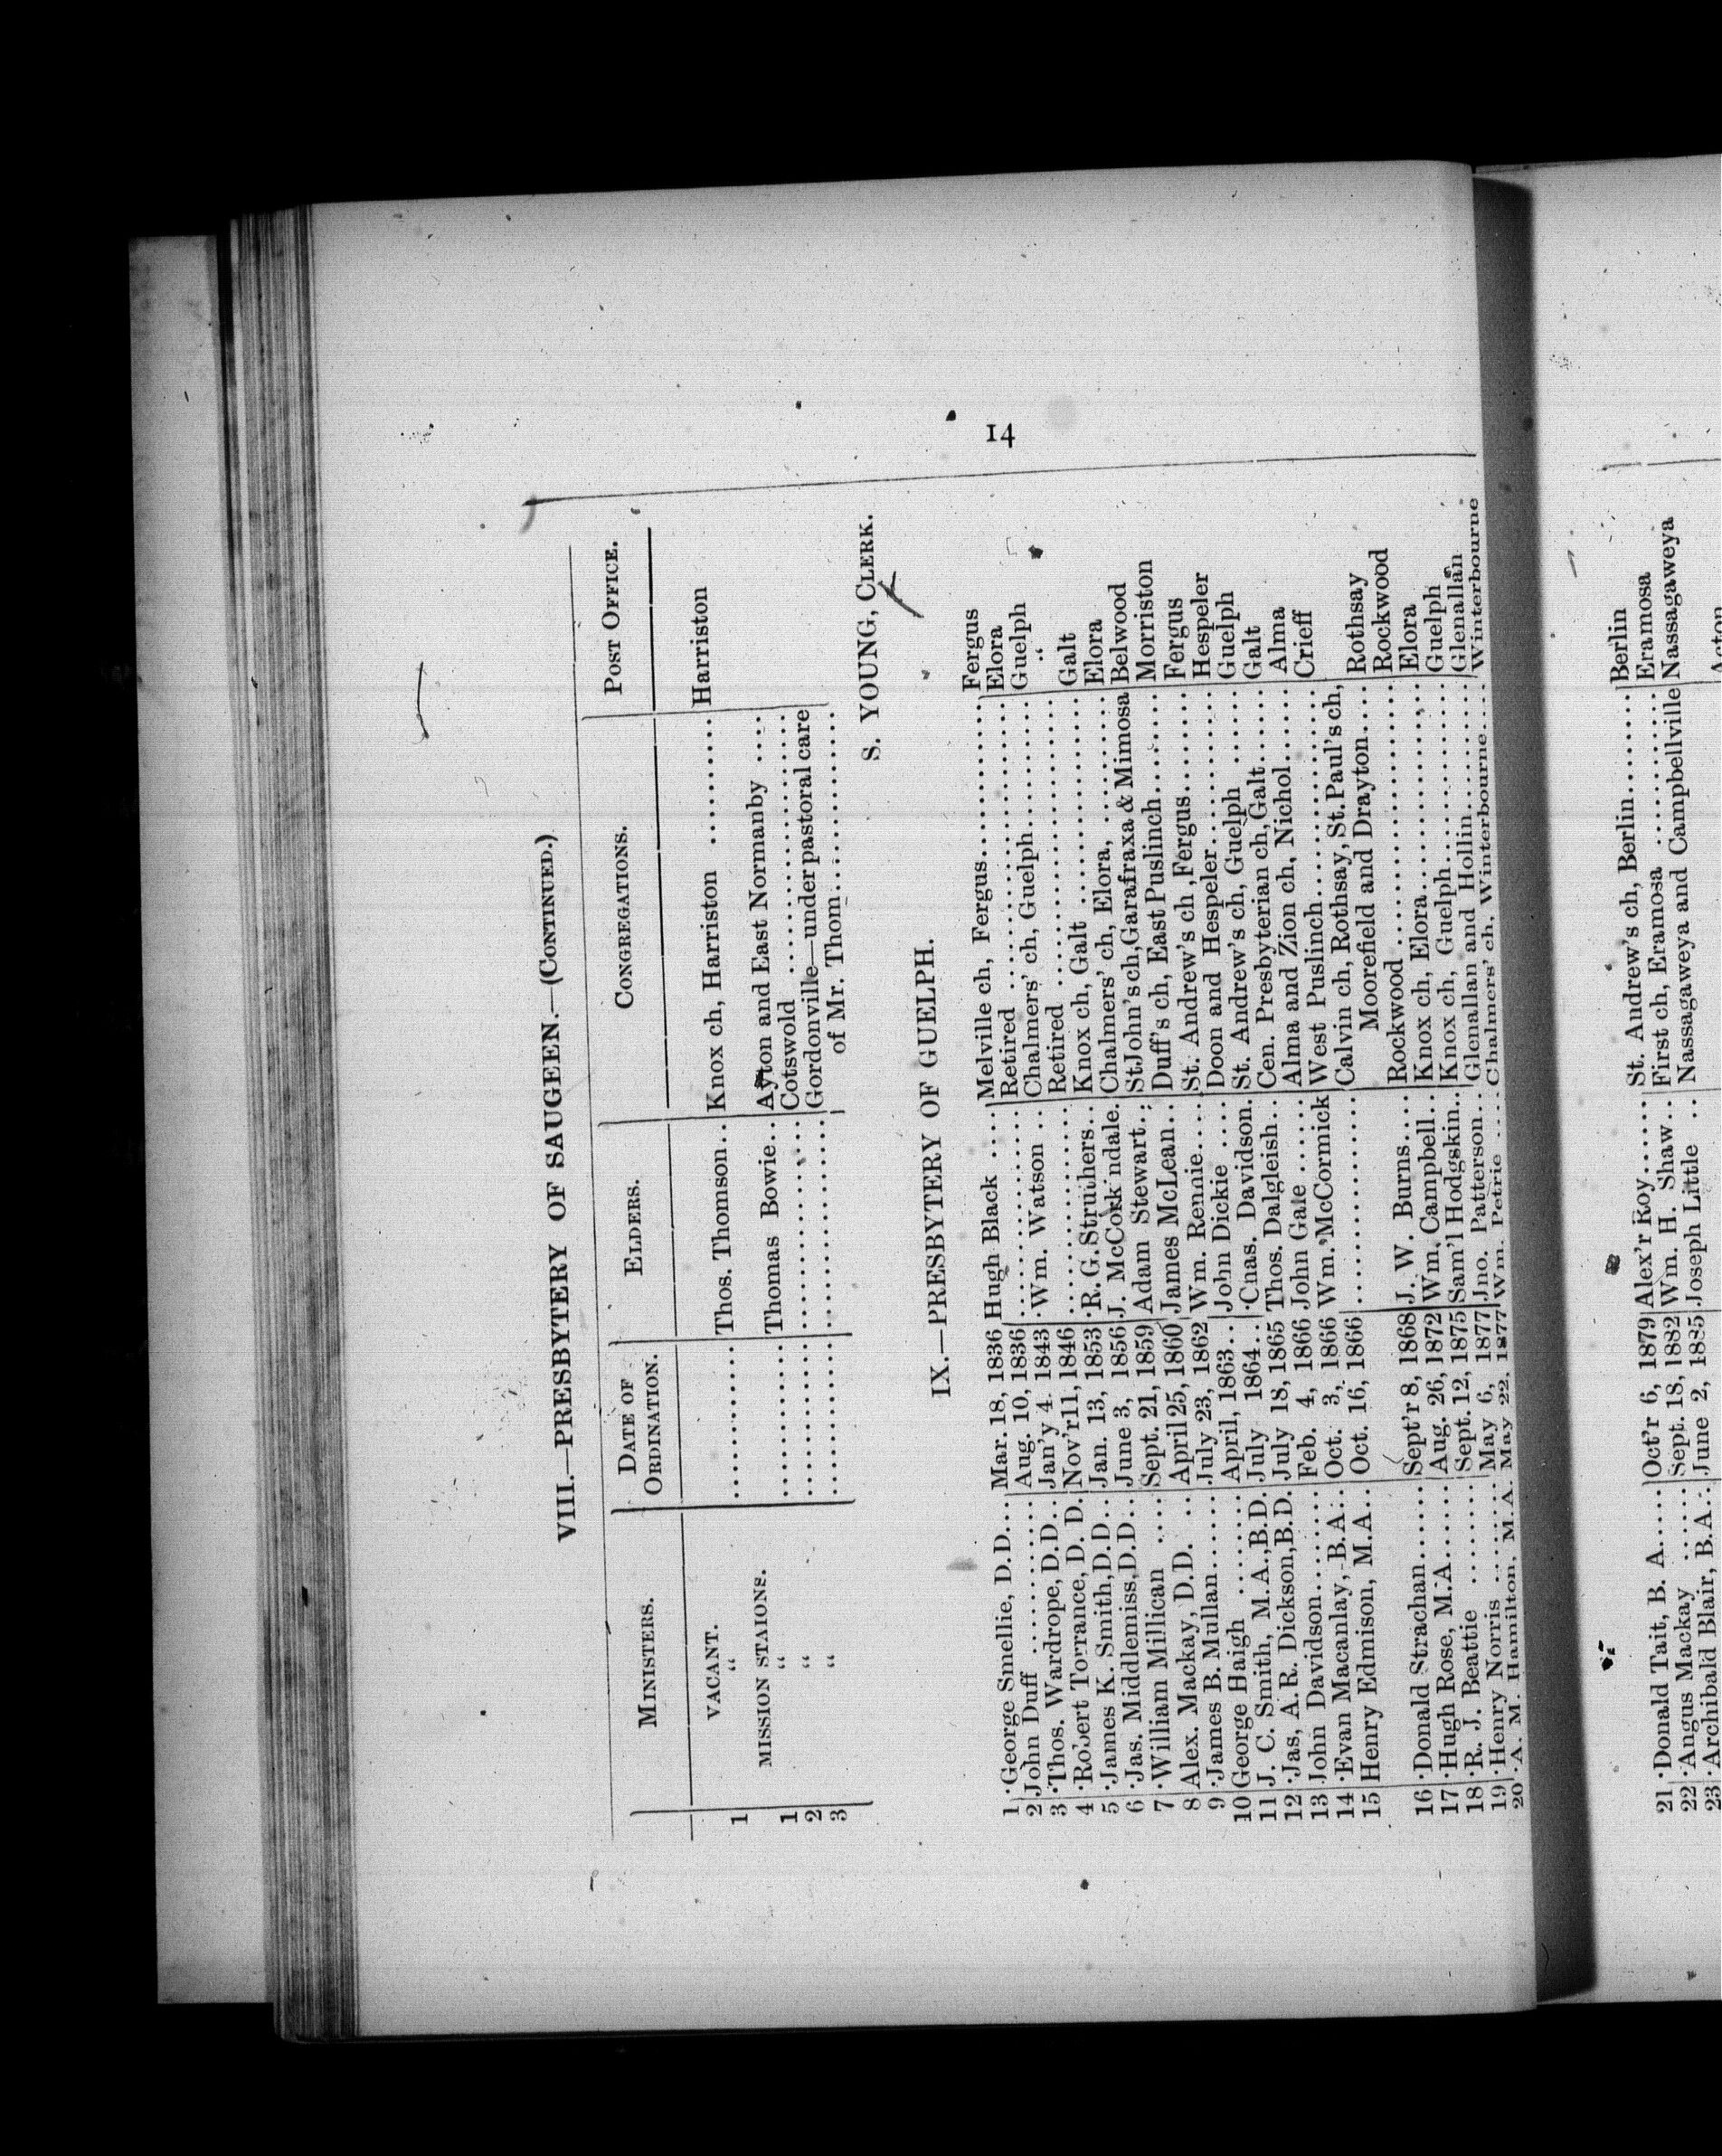 14
VIII.—PRESBYTERY OF SAUGEEN.—(CONTINUED.)
MINISTERS. DATE OF ORDINATION. ELDERS. CONGREGATIONS. POST OFFICE.
VACANT.
1 “ .......... Thos. Thomson.. Knox ch, Harriston .......... Harriston
MISSION STAIONS.
1 “ .......... Thomas Bowie.. Ayton and East Normanby ....
2 “ .......... .......... Cotswold ..........
3 “ .......... .......... Gordonville—under pastoral care
of Mr. Thom..........
S. YOUNG, CLERK.
IX.—PRESBYTERY OF GUELPH.
1 ·George Smellie, D.D.... Mar. 18, 1836 Hugh Black .... Melville ch, Fergus.......... Fergus
2 John Duff .......... Aug. 10, 1836 .......... Retired .......... Elora
3 ·Thos. Wardrope, D.D.. Jan'y 4. 1843 ·Wm. Watson .. Chalmers' ch, Guelph.......... Guelph
4 ·Robert Torrance, D. D. Nov'r 11, 1846 .......... Retired .......... “
5 ·James K. Smith, D.D.. Jan. 13, 1853 ·R. G. Struthers.. Knox ch, Galt .......... Galt
6 ·Jas. Middlemiss, D.D.. June 3, 1856 J. McCork ndale. Chalmers' ch, Elora, .......... Elora
7 ·William Millican .... Sept. 21, 1859 Adam Stewart.. St John's ch, Garafraxa & Mimosa Belwood
8 Alex. Mackay, D.D. .. April 25, 1860 James McLean.. Duff's ch, East Puslinch........ Morriston
9 ·James B. Mullan....... July 23, 1862 Wm. Rennie.... St. Andrew's ch, Fergus........ Fergus
10 George Haigh ........ April, 1863.. John Dickie .... Doon and Hespeler.......... Hespeler
11 J. C. Smith, M.A., B.D. July 1864.. ·Chas. Davidson. St. Andrew's ch, Guelph ...... Guelph
12 ·Jas, A. R. Dickson, B.D. July 18, 1865 Thos. Dalgleish.. Cen. Presbyterian ch, Galt...... Galt
13 John Davidson........ Feb. 4, 1866 John Gale ...... Alma and Zion ch, Nichol...... Alma
14 ·Evan Macanlay, B.A.. Oct. 3, 1866 Wm. McCormick West Puslinch.......... Crieff
15 Henry Edmison, M.A.. Oct. 16, 1866 .......... Calvin ch, Rothsay, St. Paul's ch,
Moorefield and Drayton.... Rothsay
16 ·Donald Strachan....... Sept'r 8, 1868 J. W. Burns.... Rockwood .......... Rockwood
17 ·Hugh Rose, M.A....... Aug. 26, 1872 Wm, Campbell.. Knox ch, Elora.......... Elora
18 ·R. J. Beattie ........ Sept. 12, 1875 Sam'l Hodgskin.. Knox ch, Guelph.......... Guelph
19 ·Henry Norris ........ May 6, 1877 Jno. Patterson... Glenallan and Hollin.......... Glenallan
20 ·A. M. Hamilton, M.A. May 22, 1877 Wm. Petrie .... Chalmers' ch, Winterbourne.... Winterbourne
21 ·Donald Tait, B. A..... Oct'r 6, 1879 Alex'r Roy...... St. Andrew's ch, Berlin........ Berlin
22 ·Angus Mackay ...... Sept. 18, 1882 Wm. H. Shaw.. First ch, Eramosa .......... Eramosa
23 ·Archibald Blair, B.A.. June 2, 1885 Joseph Little .. Nassagaweya and Campbellville Nassagaweya
Acton